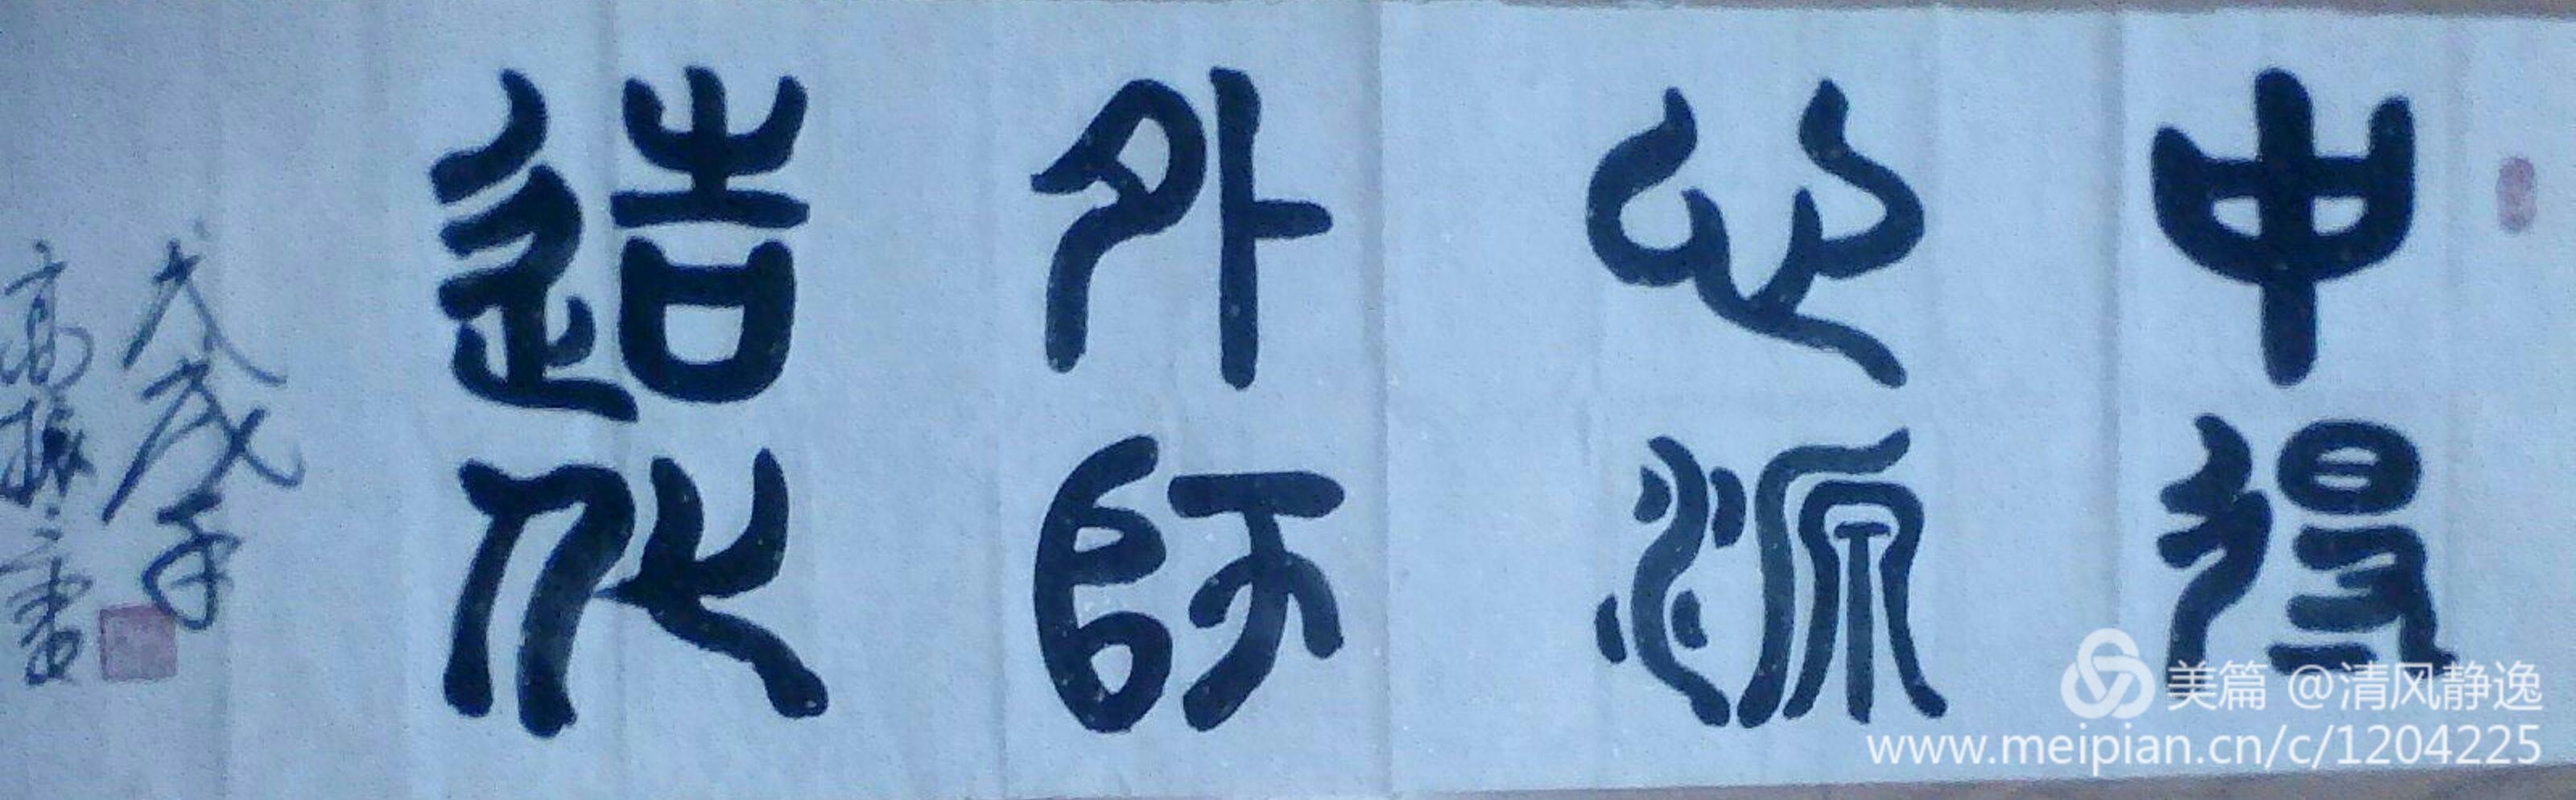 中得
心源
外师
造化
戊戌年
高振之书
美篇 @清风静逸
www.meipian.cn/c/1204225